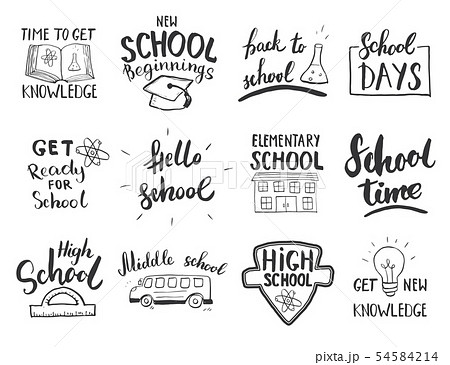 TIME TO GET
KNOWLEDGE
NEW
SCHOOL
Beginnings
back to
school
School
DAYS
GET
Ready
FOR
School
Hello
School
ELEMENTARY
SCHOOL
School
time
High
School
Middle school
HIGH
SCHOOL
GET NEW
KNOWLEDGE
PIXTA
pixta.jp - 54584214